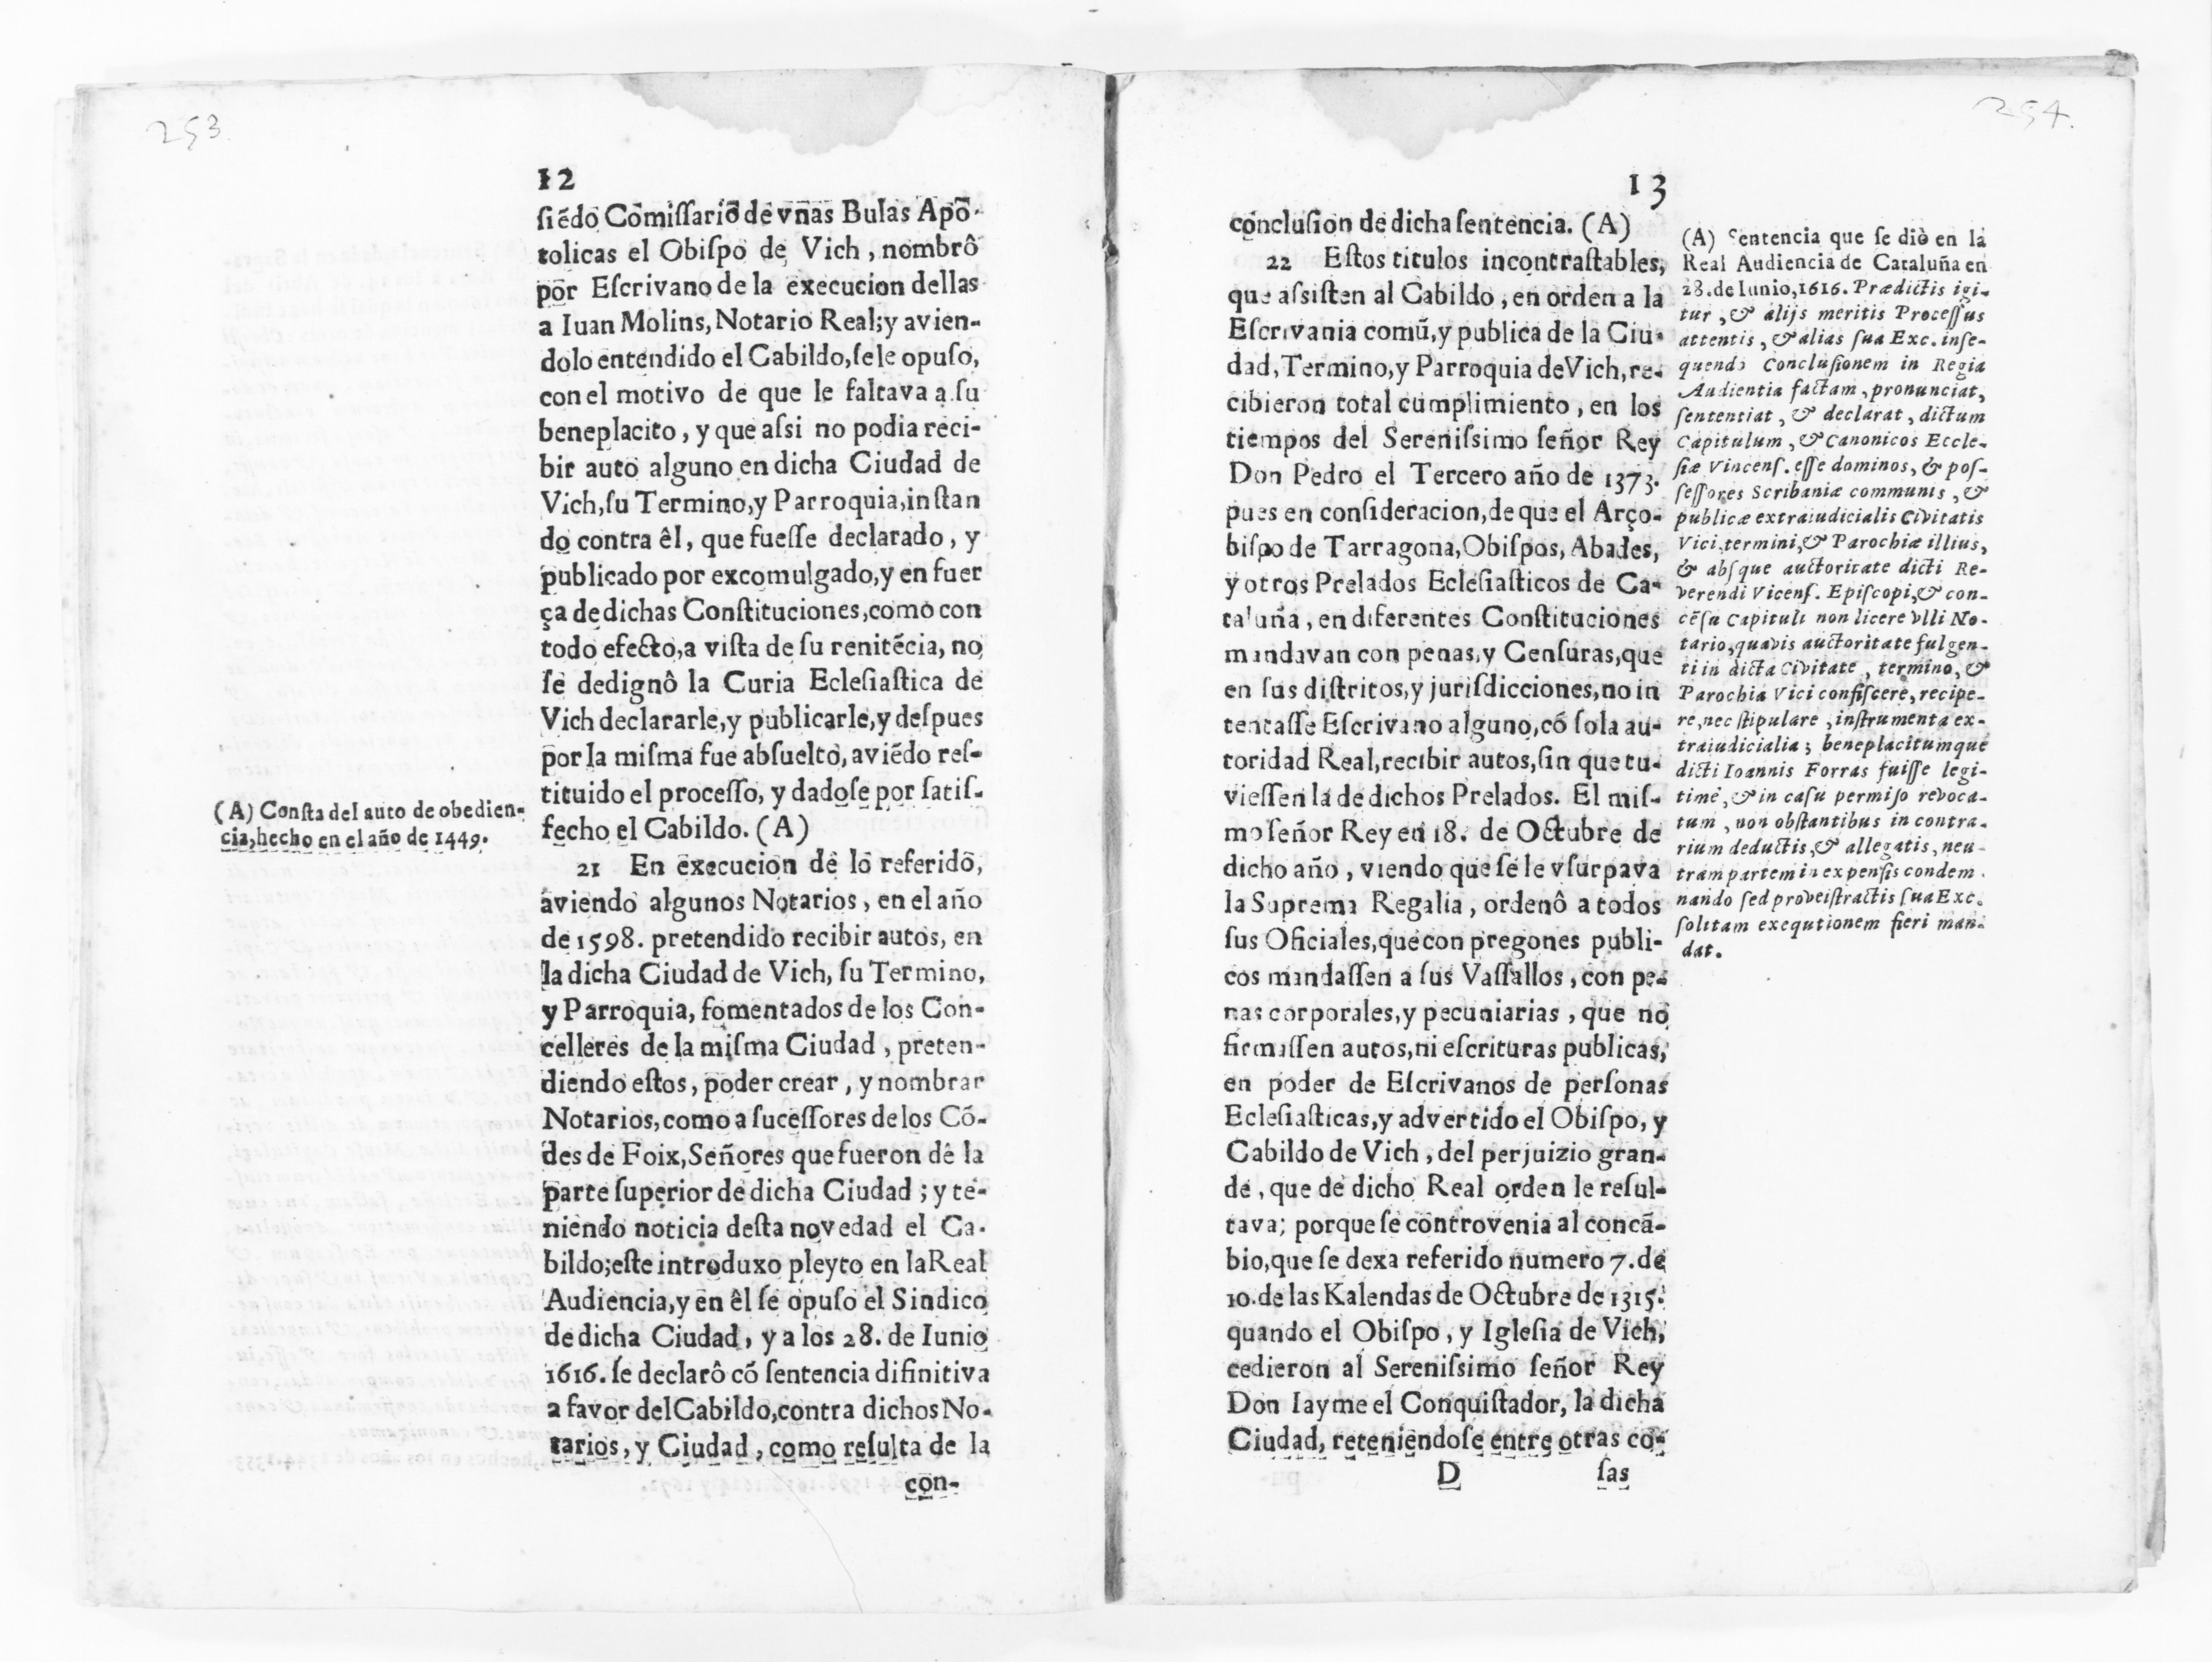 253.
12
siẽdo Comissario de vnas Bulas Apõ-
tolicas el Obispo de Vich, nombrô
por Escrivano de la execucion dellas
a Iuan Molins, Notario Real; y avien-
dolo entendido el Cabildo, sele opuso,
con el motivo de que le faltava a su
beneplacito, y que assi no podia reci-
bir auto alguno en dicha Ciudad de
Vich, su Termino, y Parroquia, instan
do contra êl, que fuesse declarado, y
publicado por excomulgado, y en fuer
ça de dichas Constituciones, como con
todo efecto, a vista de su renitẽcia, no
se dedignô la Curia Eclesiastica de
Vich declararle, y publicarle, y despues
por la misma fue absuelto, aviẽdo res-
tituido el processo, y dadose por satis-
fecho el Cabildo. (A)
(A) Consta del auto de obedien-
cia, hecho en el año de 1449.
21 En execucion de lo referido,
aviendo algunos Notarios, en el año
de 1598. pretendido recibir autos, en
la dicha Ciudad de Vich, su Termino,
y Parroquia, fomentados de los Con-
celleres de la misma Ciudad, preten-
diendo estos, poder crear, y nombrar
Notarios, como a sucessores de los Cõ-
des de Foix, Señores que fueron de la
parte superior de dicha Ciudad; y te-
niendo noticia desta novedad el Ca-
bildo; este introduxo pleyto en la Real
Audiencia, y en êl se opuso el Sindico
de dicha Ciudad, y a los 28. de Iunio
1616. se declarô cõ sentencia difinitiva
a favor del Cabildo, contra dichos No-
tarios, y Ciudad, como resulta de la
con-
254.
13
conclusion de dicha sentencia. (A)
22 Estos titulos incontrastables,
que assisten al Cabildo, en orden a la
Escrivania comũ, y publica de la Ciu-
dad, Termino, y Parroquia de Vich, re-
cibieron total cumplimiento, en los
tiempos del Serenissimo señor Rey
Don Pedro el Tercero año de 1373.
pues en consideracion, de que el Arço-
bispo de Tarragona, Obispos, Abades,
y otros Prelados Eclesiasticos de Ca-
taluña, en diferentes Constituciones
mandavan con penas, y Censuras, que
en sus distritos, y jurisdicciones, no in
tentasse Escrivano alguno, cõ sola au-
toridad Real, recibir autos, sin que tu-
viessen la de dichos Prelados. El mis-
mo señor Rey en 18. de Octubre de
dicho año, viendo que se le vsurpava
la Suprema Regalia, ordenô a todos
sus Oficiales, que con pregones publi-
cos mandassen a sus Vassallos, con pe-
nas corporales, y pecuniarias, que no
firmassen autos, ni escrituras publicas,
en poder de Escrivanos de personas
Eclesiasticas, y advertido el Obispo, y
Cabildo de Vich, del perjuizio gran-
de, que de dicho Real orden le resul-
tava; porque se controvenia al concã-
bio, que se dexa referido numero 7. de
10. de las Kalendas de Octubre de 1315.
quando el Obispo, y Iglesia de Vich,
cedieron al Serenissimo señor Rey
Don Iayme el Conquistador, la dicha
Ciudad, reteniendose entre otras co-
D sas
(A) Sentencia que se diò en la
Real Audiencia de Cataluña en
28. de Iunio, 1616. Prædictis igi-
tur, & alijs meritis Processus
attentis, & alias sua Exc. inse-
quendo Conclusionem in Regia
Audientia factam, pronunciat,
sententiat, & declarat, dictum
Capitulum, & Canonicos Eccle-
siæ Vincens. esse dominos, & pos-
sessores Scribaniæ communis, &
publicæ extraiudicialis Civitatis
Vici, termini, & Parochiæ illius,
& absque auctoritate dicti Re-
verendi Vicens. Episcopi, & con-
cẽsu Capituli non licere vlli No-
tario, quavis auctoritate fulgen-
ti in dicta Civitate, termino, &
Parochia Vici confiscere, recipe-
re, nec stipulare, instrumenta ex-
traiudicialia; beneplacitumque
dicti Ioannis Forras fuisse legi-
timè, & in casu permiso revoca-
tum, non obstantibus in contra-
rium deductis, & allegatis, neu-
tram partem in expensis condem-
nando sed proveistractis sua Exc.
solitam exequtionem fieri man-
dat.